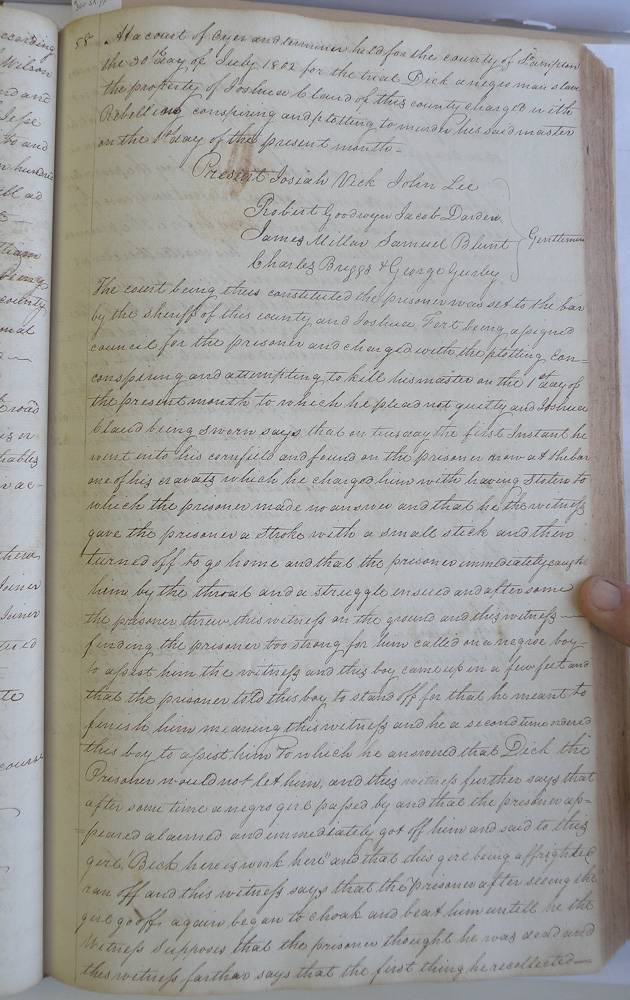 58
At a court of Oyer and terminer held for the county of
the 30th day of July 1802 for the trial Dick a negro man slave
the property of Joshua Claud of this county charged with
Rebelling, conspiring and plotting to murder his said master
on the 1st day of the present month —
Present Josiah Vick John Lee
Robert Goodwyn Jacob Darden
James Millar Samuel Blunt Gentlemen
Charles Briggs & George Gurley
The court being thus constituted the prisoner was set to the bar
by the sheriff of this county and Joshua Fort being assigned
council for the prisoner and charged with the plotting, con=
conspiring and attempting to kill his master on the 1st day of
the present month to which he plead not guilty and Joshua
Claud being sworn says, that on tuesday the first Instant he
went into his cornfield and found on the prisoner now at the bar
one of his cravats which he charged him with having stolen to
which the prisoner made no answer and that he the witness
gave the prisoner a stroke with a small stick and then
turned off to go home and that the prisoner immediately caught
him by the throat and a struggle ensued and after some
the prisoner threw this witness on the ground and this witness —
finding the prisoner too strong for him called on a negroe boy
to assist him the witness and this boy came up in a few feet and
that the prisoner told this boy to stand off for that he meant to
finish him meaning this witness and he a second time ordered
this boy to assist him to which he answered that Dick the
Prisoner would not let him, and this witness further says that
after some time a negro girl passed by and that the prisoner ap=
=peared alarmed and immediately got off him and said to this
girl, "Beck here is work here" and that this girl being affrighted
ran off and this witness says that the prisoner after seeing the
girl go off again began to choak and beat him untill he the
Witness supposes that the prisoner thought he was dead and
this witness farthar says that the first thing he recollected —
according
Wilson
and
hundred
county
road
Joiner
Joiner
to
course